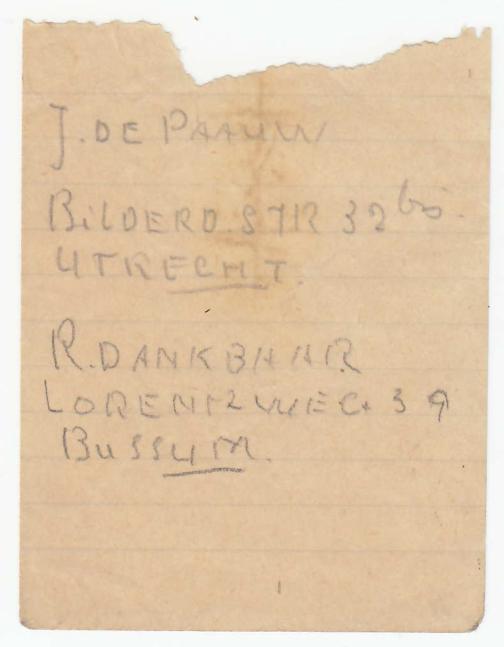 J. DE PAAUW
BILDERD. STR 32 bis.
UTRECHT.
R. DANKBAAR
LORENTZWEG 39
BUSSUM.